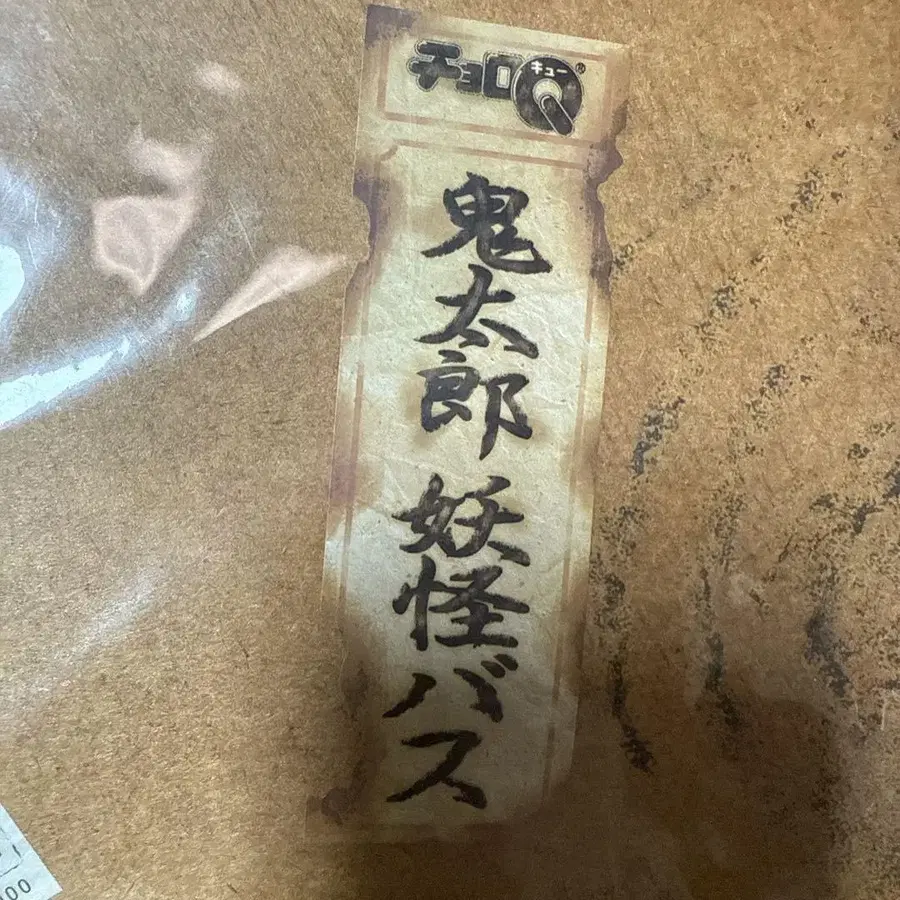 チョロQ
キュー
®
鬼太郎 妖怪バス
00